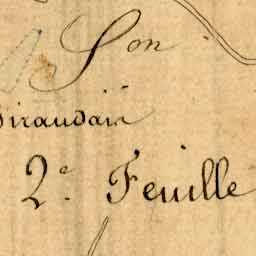 Son
Giraudais
2.e Feuille